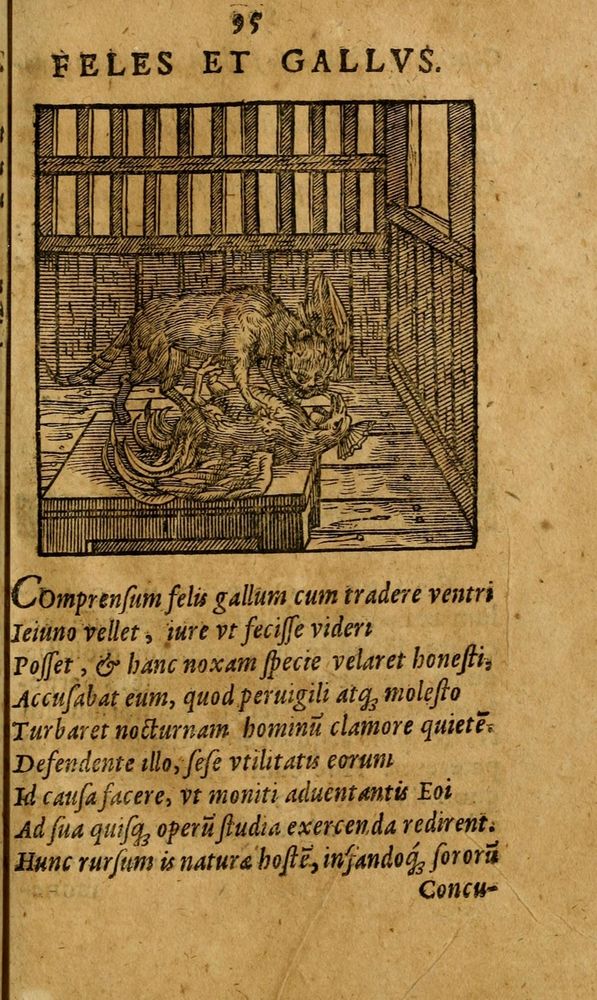 95
FELES ET GALLVS.
Comprenſum felis gallum cum tradere ventri
Ieiuno vellet, iure vt feciſſe videri
Poſſet, & hanc noxam ſpecie velaret honeſti,
Accuſabat eum, quod peruigili atqꝫ moleſto
Turbaret nocturnam hominū clamore quietē.
Defendente illo, ſeſe vtilitatis eorum
Id cauſa facere, vt moniti aduentantis Eoi
Ad ſua quiſqꝫ operū ſtudia exercenda redirent.
Hunc rurſum is naturæ hoſtē, infandoq́ꝫ ſororū
Concu-